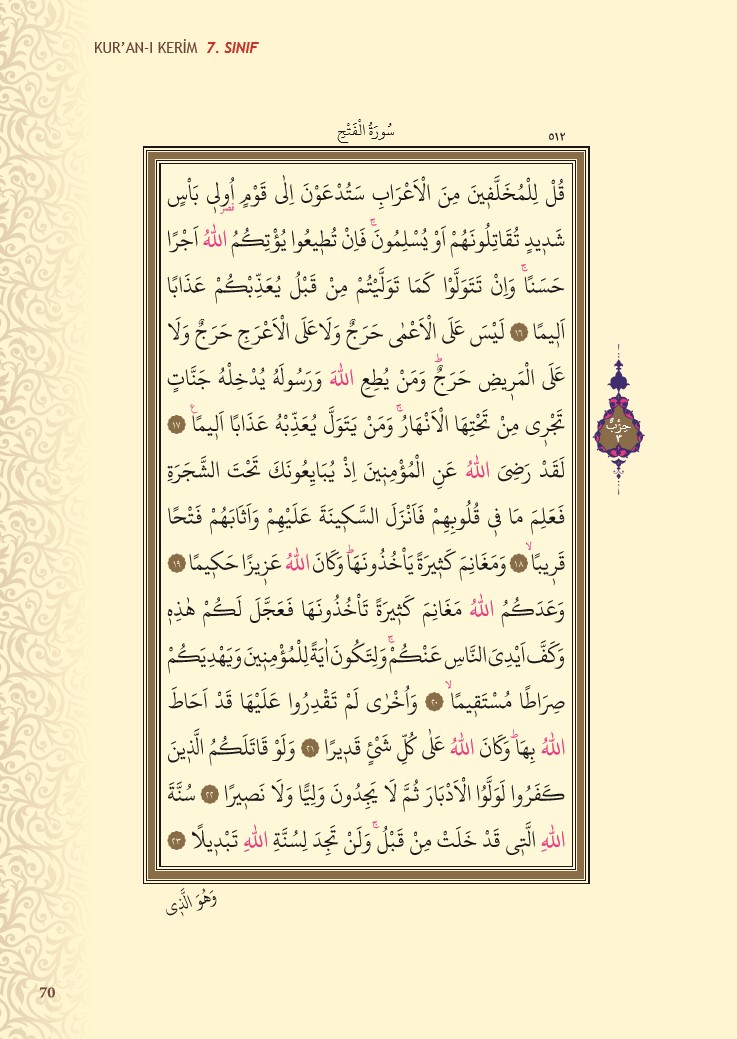 KUR’AN-I KERİM 7. SINIF
سُورَةُ الْفَتْحِ
٥١٢
قُلْ لِلْمُخَلَّفٖينَ مِنَ الْاَعْرَابِ سَتُدْعَوْنَ اِلٰى قَوْمٍ اُو۬لٖى بَاْسٍ
قصر
شَدٖيدٍ تُقَاتِلُونَهُمْ اَوْ يُسْلِمُونَۚ فَاِنْ تُطٖيعُوا يُؤْتِكُمُ اللّٰهُ اَجْرًا
حَسَنًاۚ وَاِنْ تَتَوَلَّوْا كَمَا تَوَلَّيْتُمْ مِنْ قَبْلُ يُعَذِّبْكُمْ عَذَابًا
اَلٖيمًا ﴿١٦﴾ لَيْسَ عَلَى الْاَعْمٰى حَرَجٌ وَلَا عَلَى الْاَعْرَجِ حَرَجٌ وَلَا
عَلَى الْمَرٖيضِ حَرَجٌؕ وَمَنْ يُطِعِ اللّٰهَ وَرَسُولَهُ يُدْخِلْهُ جَنَّاتٍ
تَجْرٖى مِنْ تَحْتِهَا الْاَنْهَارُۚ وَمَنْ يَتَوَلَّ يُعَذِّبْهُ عَذَابًا اَلٖيمًاࣖ ﴿١٧﴾
حِزْبٌ
٣
لَقَدْ رَضِىَ اللّٰهُ عَنِ الْمُؤْمِنٖينَ اِذْ يُبَايِعُونَكَ تَحْتَ الشَّجَرَةِ
فَعَلِمَ مَا فٖى قُلُوبِهِمْ فَاَنْزَلَ السَّكٖينَةَ عَلَيْهِمْ وَاَثَابَهُمْ فَتْحًا
قَرٖيبًاۙ ﴿١٨﴾ وَمَغَانِمَ كَثٖيرَةً يَاْخُذُونَهَاؕ وَكَانَ اللّٰهُ عَزٖيزًا حَكٖيمًا ﴿١٩﴾
وَعَدَكُمُ اللّٰهُ مَغَانِمَ كَثٖيرَةً تَاْخُذُونَهَا فَعَجَّلَ لَكُمْ هٰذِهٖ
وَكَفَّ اَيْدِىَ النَّاسِ عَنْكُمْۚ وَلِتَكُونَ اٰيَةً لِلْمُؤْمِنٖينَ وَيَهْدِيَكُمْ
صِرَاطًا مُسْتَقٖيمًاۙ ﴿٢٠﴾ وَاُخْرٰى لَمْ تَقْدِرُوا عَلَيْهَا قَدْ اَحَاطَ
اللّٰهُ بِهَاؕ وَكَانَ اللّٰهُ عَلٰى كُلِّ شَىْءٍ قَدٖيرًا ﴿٢١﴾ وَلَوْ قَاتَلَكُمُ الَّذٖينَ
كَفَرُوا لَوَلَّوُا الْاَدْبَارَ ثُمَّ لَا يَجِدُونَ وَلِيًّا وَلَا نَصٖيرًا ﴿٢٢﴾ سُنَّةَ
اللّٰهِ الَّتٖى قَدْ خَلَتْ مِنْ قَبْلُۚ وَلَنْ تَجِدَ لِسُنَّةِ اللّٰهِ تَبْدٖيلًا ﴿٢٣﴾
وَهُوَ الَّذٖى
70